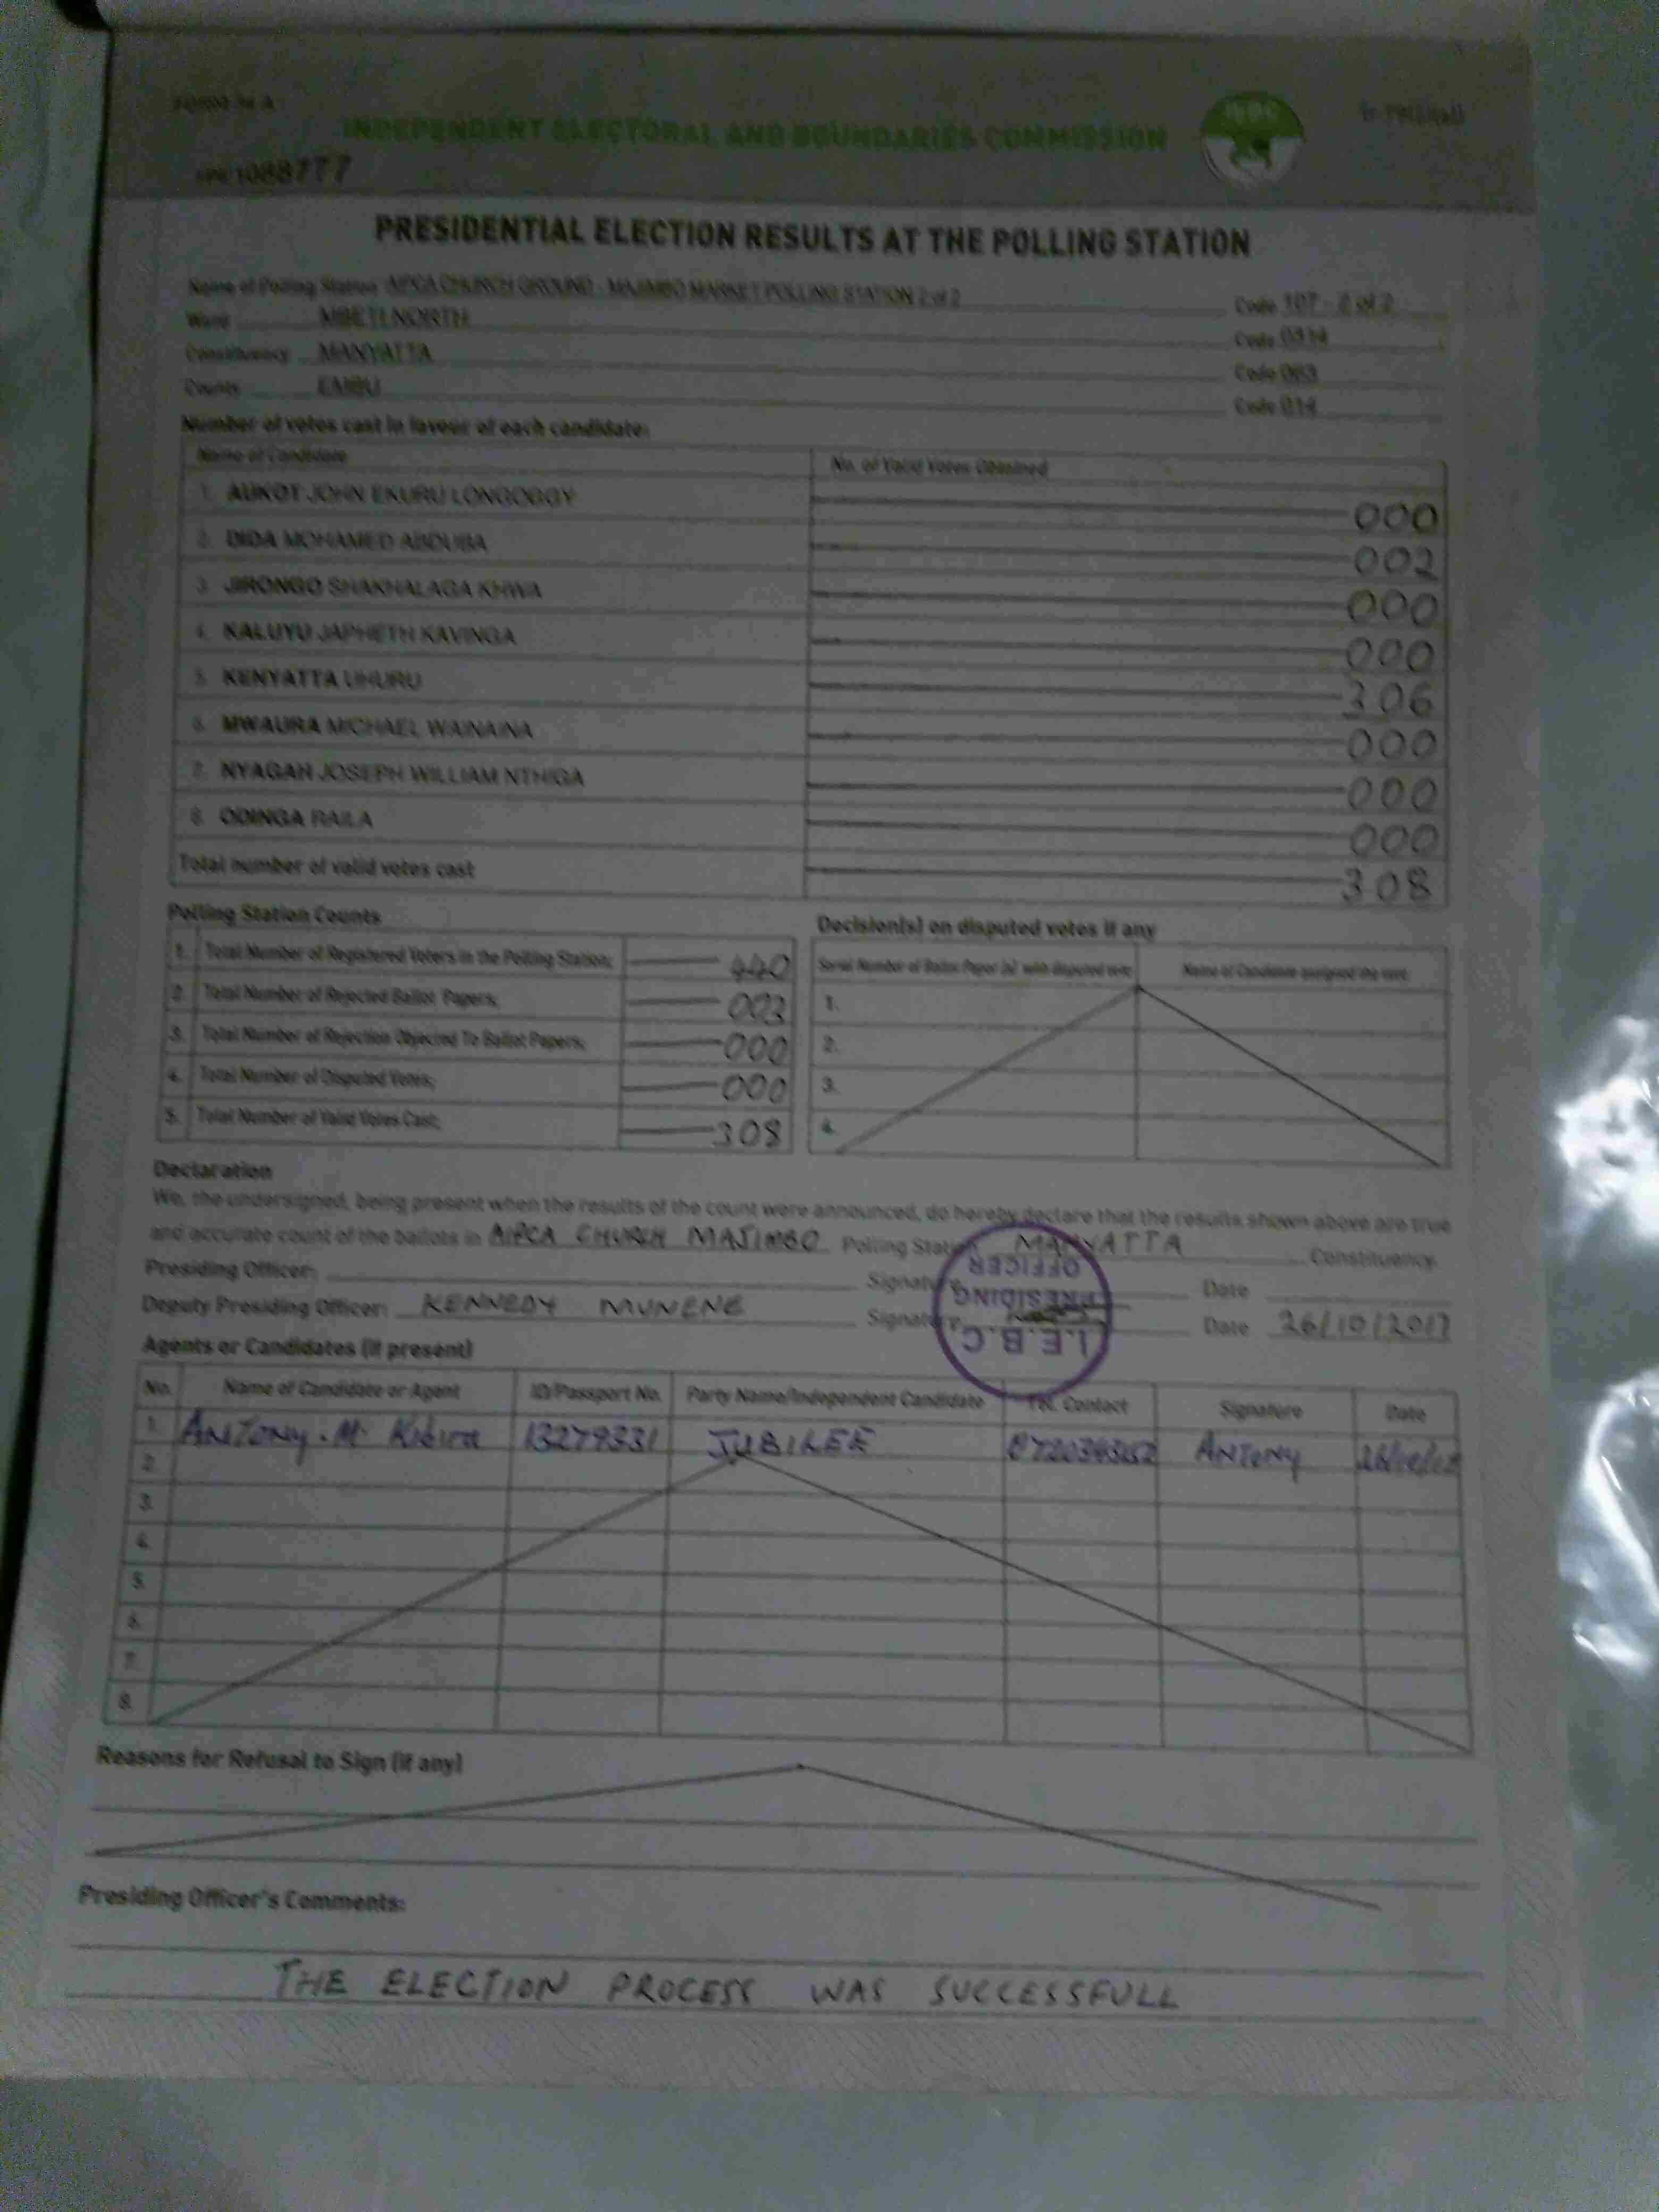 FORM 34 A
INDEPENDENT ELECTORAL AND BOUNDARIES COMMISSION
IEBC
1088777
PRESIDENTIAL ELECTION RESULTS AT THE POLLING STATION
Name of Polling Station AIPCA CHURCH GROUND - MAJIMBO MARKET POLLING STATION 2 of 2 Code 107 - 2 of 2
Ward MBETI NORTH Code 0314
Constituency MANYATTA Code 063
County EMBU Code 014
Number of votes cast in favour of each candidate:
Name of Candidate No. of Valid Votes Obtained
1. AUKOT JOHN EKURU LONGOGGY 000
2. DIDA MOHAMED ABDUBA 002
3. JIRONGO SHAKHALAGA KHWA 000
4. KALUYU JAPHETH KAVINGA 000
5. KENYATTA UHURU 306
6. MWAURA MICHAEL WAINAINA 000
7. NYAGAH JOSEPH WILLIAM NTHIGA 000
8. ODINGA RAILA 000
Total number of valid votes cast 308
Polling Station Counts
1. Total Number of Registered Voters in the Polling Station; 440
2. Total Number of Rejected Ballot Papers;
3. Total Number of Rejection Objected To Ballot Papers; 000
4. Total Number of Disputed Votes; 000
5. Total Number of Valid Votes Cast; 308
Decision(s) on disputed votes if any
Serial Number of Ballot Paper (s) with disputed vote Name of Candidate assigned the vote
1.
2.
3.
4.
Declaration
We, the undersigned, being present when the results of the count were announced, do hereby declare that the results shown above are true
and accurate count of the ballots in AIPCA CHURCH MAJIMBO Polling Station MANYATTA Constituency.
Presiding Officer: Signature Date
Deputy Presiding Officer: KENNEDY MUNENE Signature Date 26/10/2017
I.E.B.C
PRESIDING
OFFICER
Agents or Candidates (if present)
No. Name of Candidate or Agent ID/Passport No. Party Name/Independent Candidate Tel. Contact Signature Date
1. ANTONY. M. 13279331 JUBILEE ANTONY
2.
3.
4.
5.
6.
7.
8.
Reasons for Refusal to Sign (if any)
Presiding Officer's Comments:
THE ELECTION PROCESS WAS SUCCESSFULL